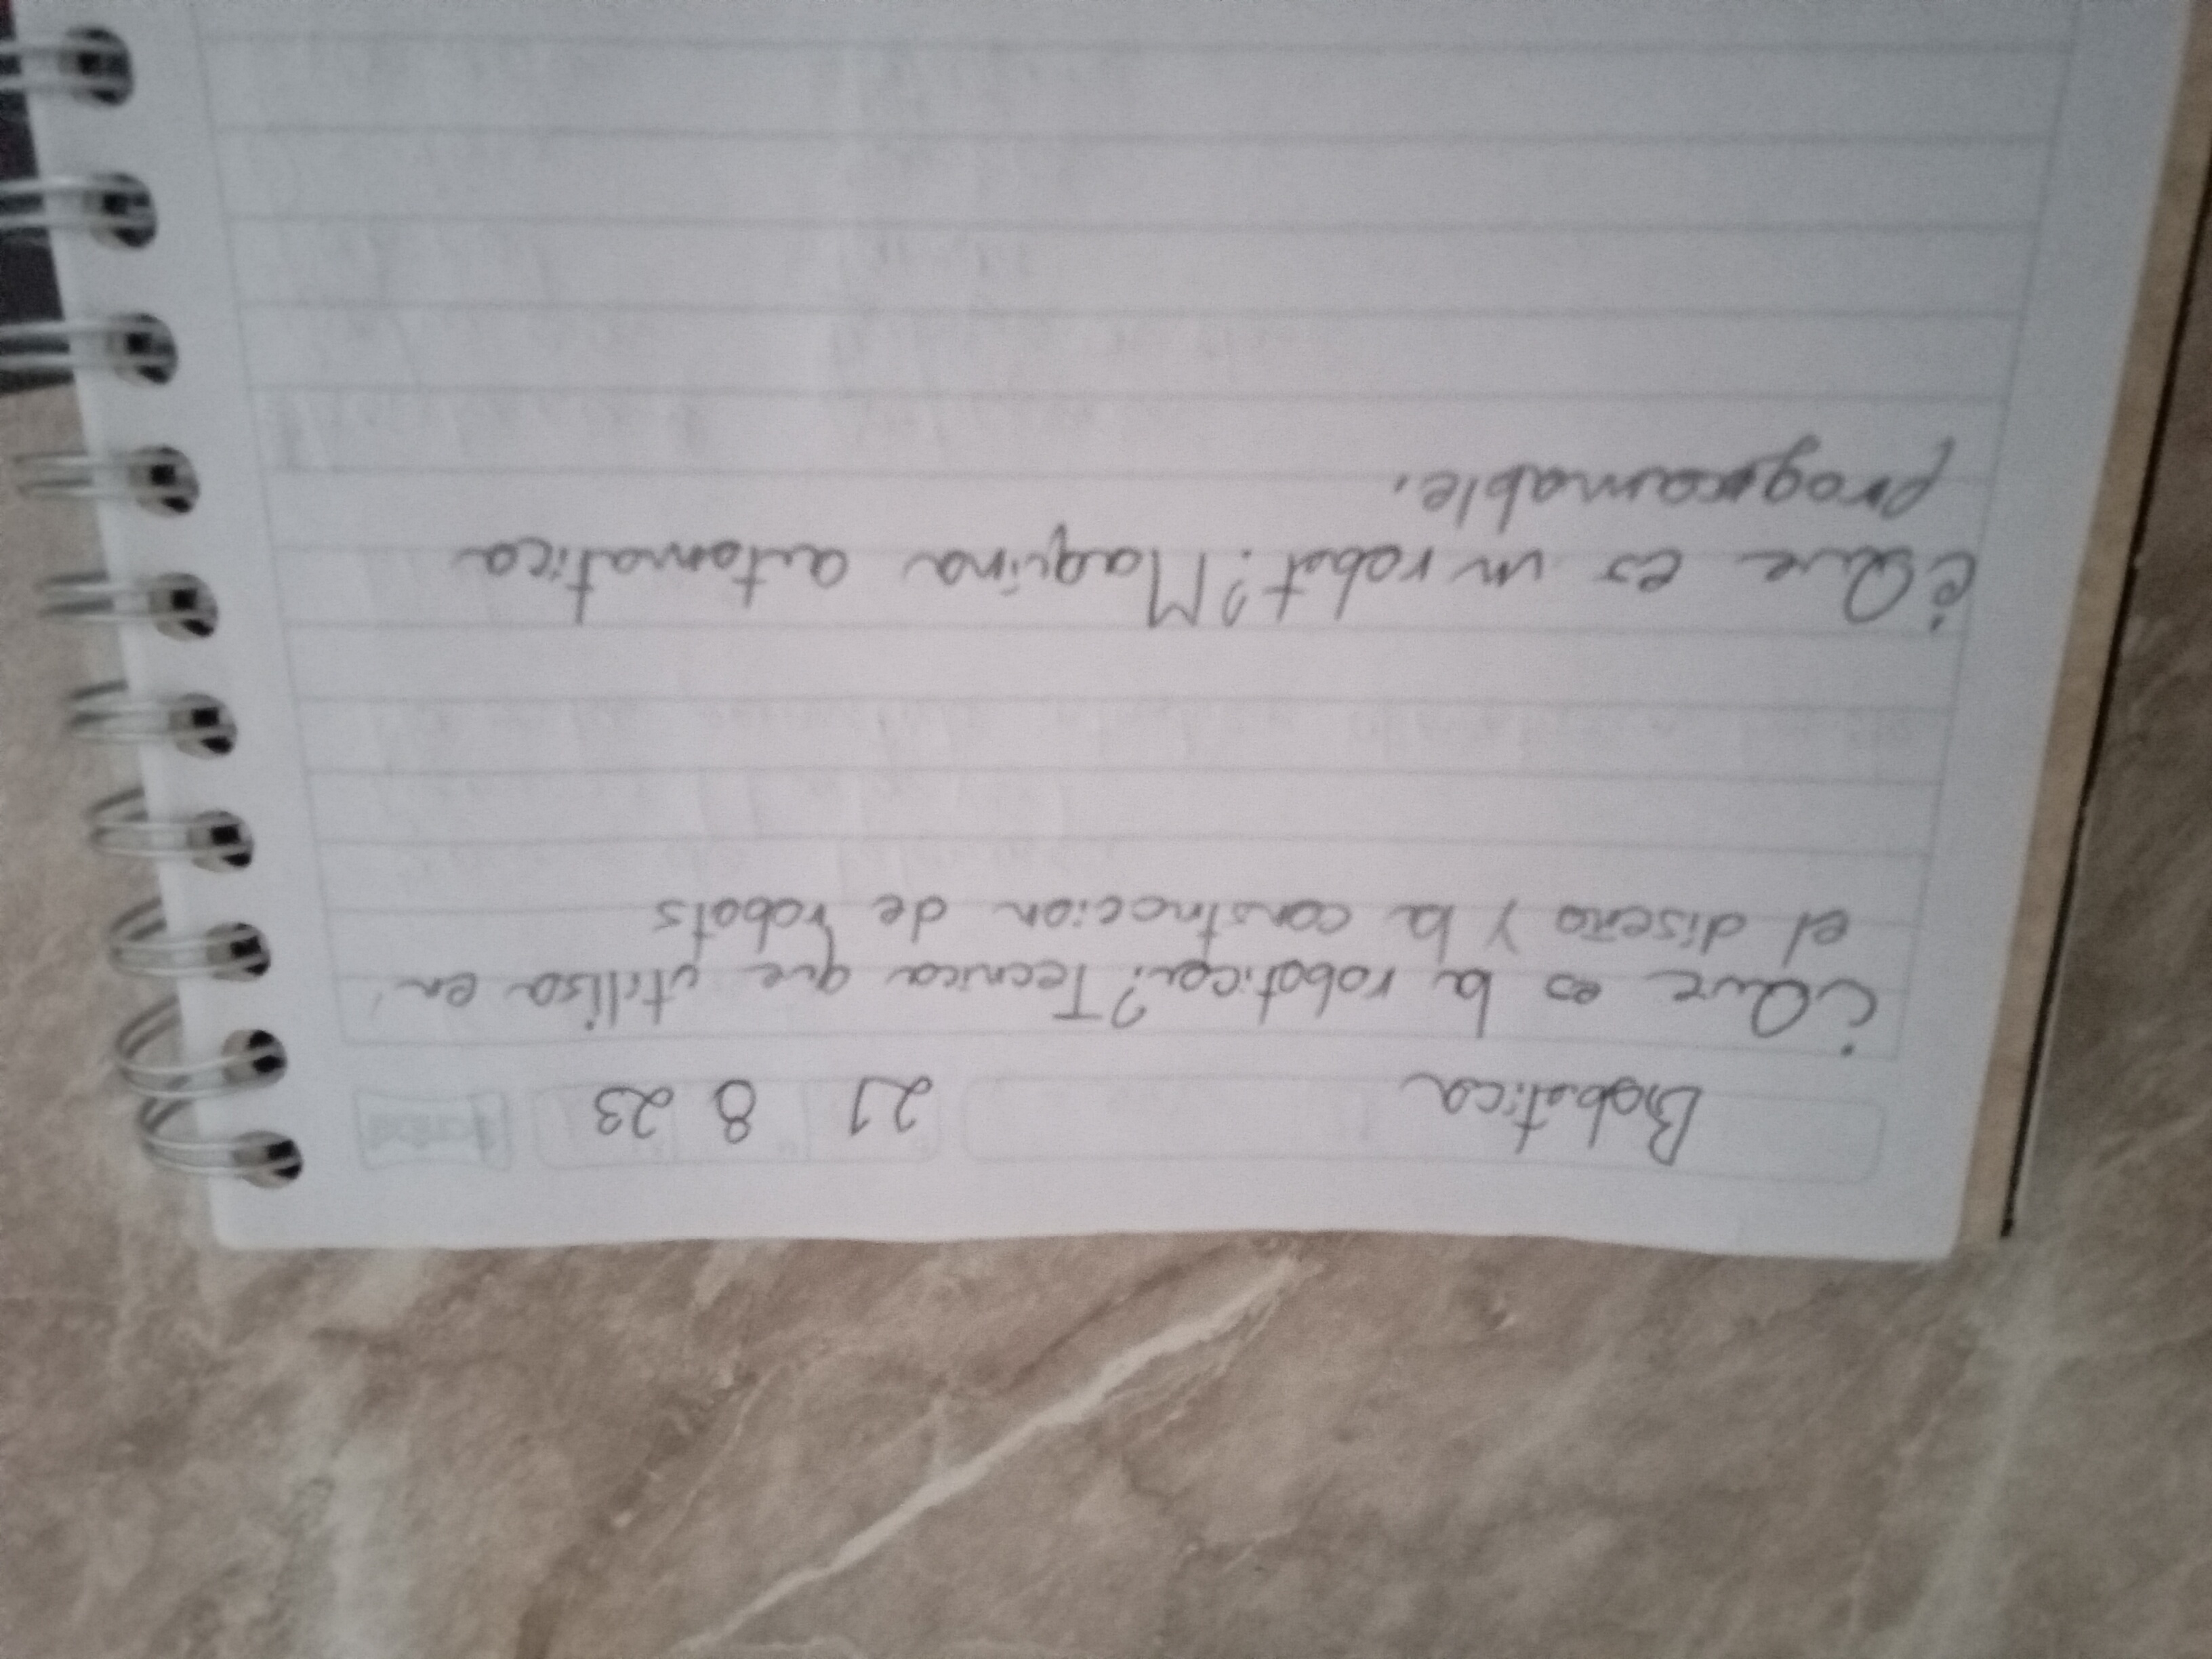 Robotica 21 8 23
¿Que es la robotica? Tecnica que utilisa en
el diseño y la construccion de robots
¿Que es un robot? Maquina automatica
programable.